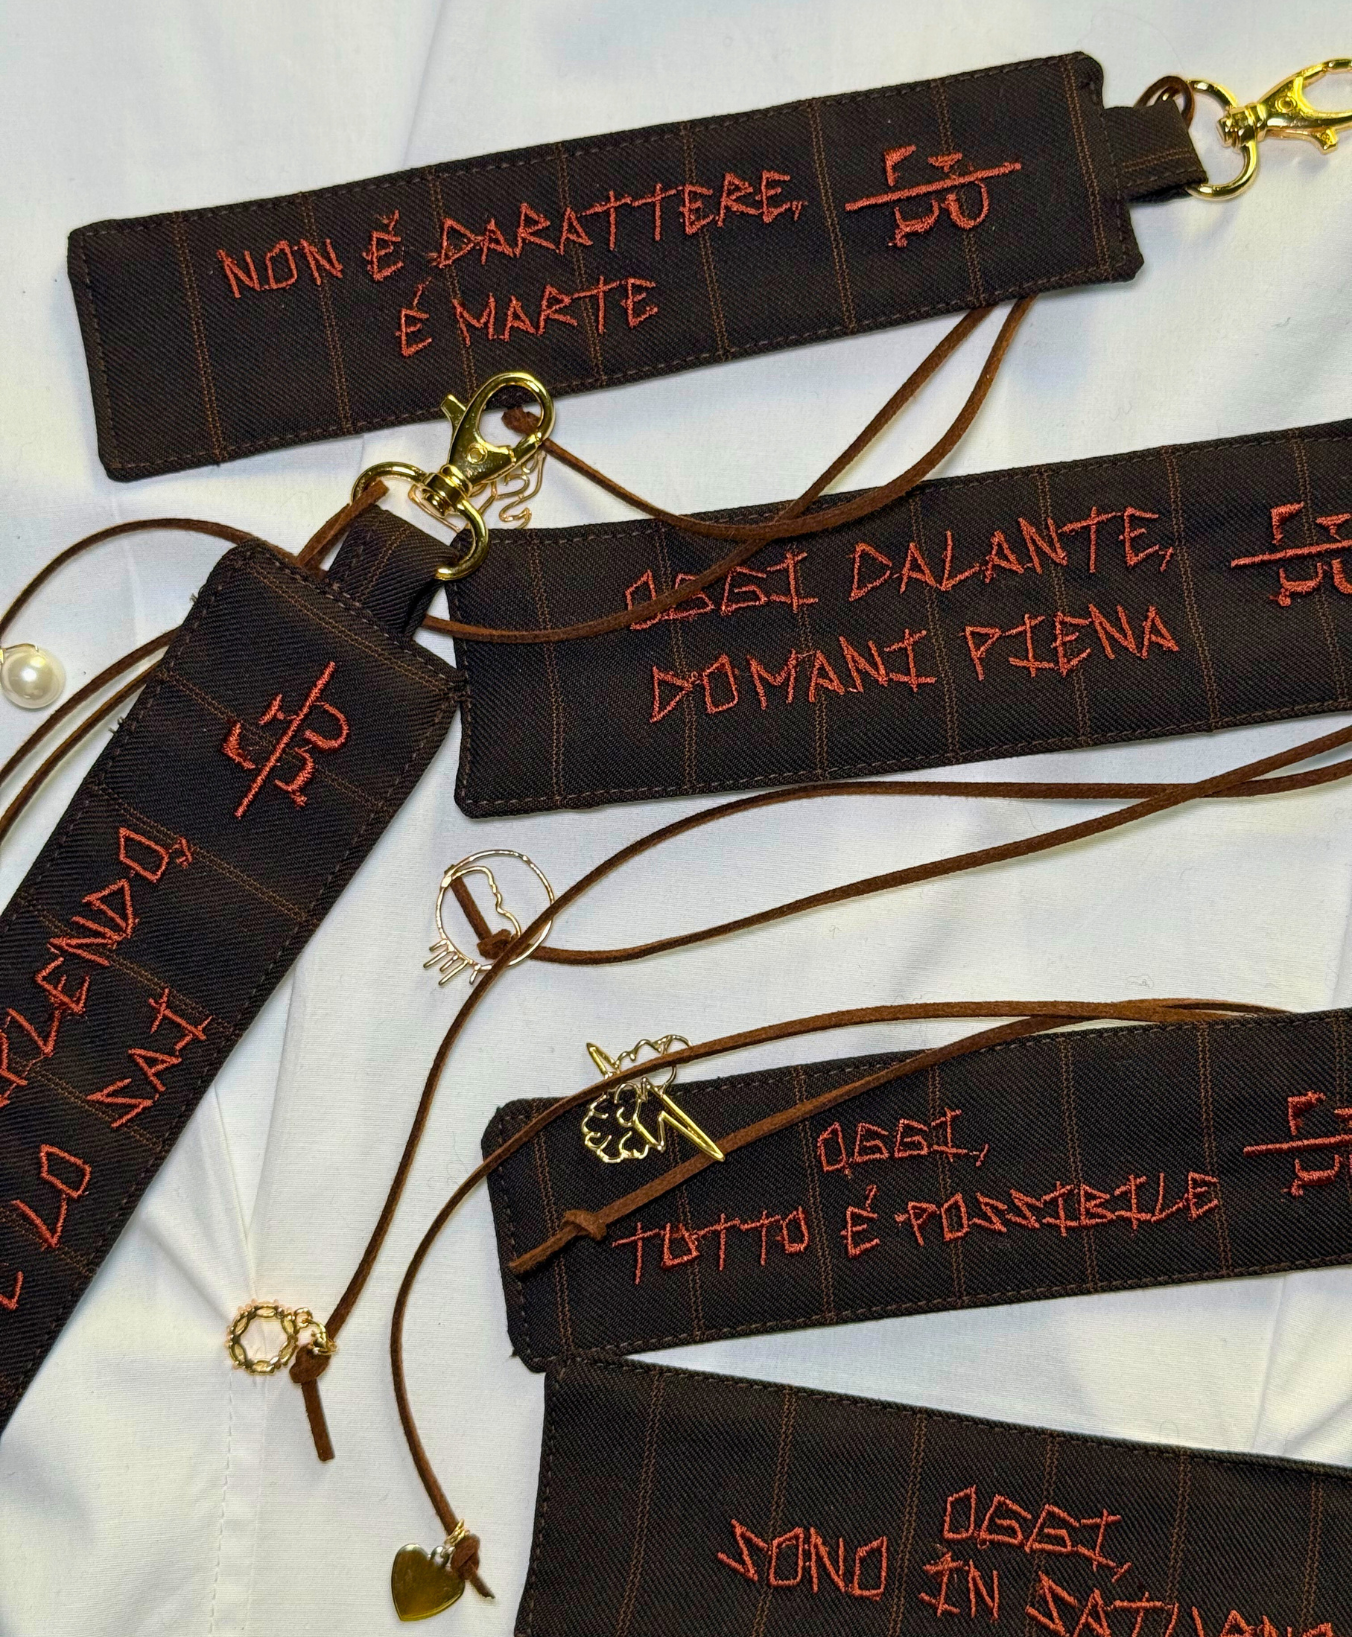 NON É DARATTERE,
É MARTE
OGGI DALANTE,
DOMANI PIENA
LO SAI
OGGI,
TUTTO É POSSIBILE
OGGI,
SONO IN